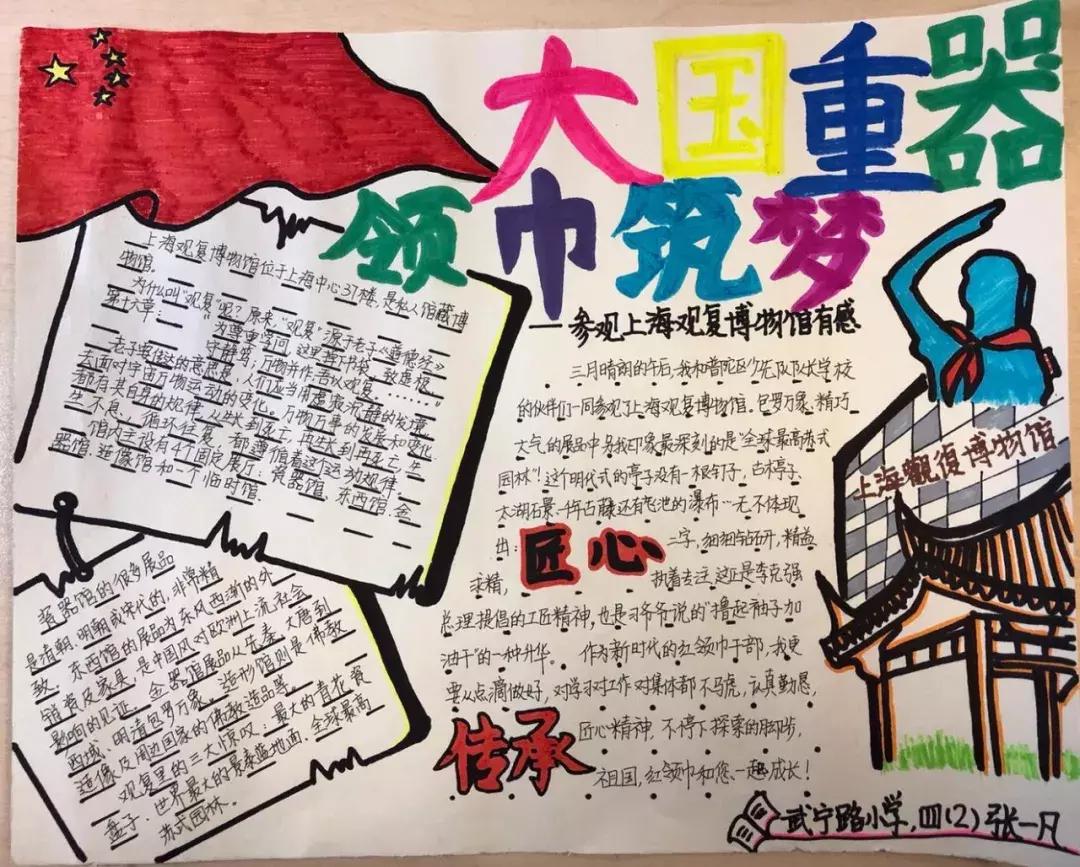 大国重器
领巾筑梦
—参观上海观复博物馆有感
上海观复博物馆位于上海中心37楼,是私人馆藏博
物馆。
为什么叫"观复"呢?原来,"观复"源于老子《道德经》
第十六章:
守静笃,万物并作,吾以观复。……"
老子要传达的意思是:人们应当用虚寂沉静的
去面对宇宙万物运动的变化。万物万事的发展和变化
都有其自身的规律,从生长到死亡,再生长到再死亡,生
生不息,循环往复,都遵循着这个运动规律。
馆内主设有4个固定展厅:瓷器馆、东西馆、金
器馆、造像馆和一个临时馆。
瓷器馆的很多展品
是清朝、明朝或宋代的,非常精
致。东西馆的展品为东风西渐的外
销瓷及家具,是中国风对欧洲上流社会
影响的见证。金器馆展品从先秦、大唐到
西域、明清包罗万象。造形馆则是佛教
造像及周边国家的佛教造品等。
观复里的三大惊叹:最大的青花瓷
盘子、世界最大的景泰蓝地画、全球最高
苏式园林。
三月晴朗的午后,我和普陀区少先队队长学校
的伙伴们一同参观了上海观复博物馆。包罗万象、精巧
大气的展品中另我印象最深刻的是"全球最高苏式
园林"!这个明代式的亭子没有一根钉子,古木亭子、
太湖石景、一件古藤还有龙池的瀑布…无不体现
出:匠心二字,细细钻研,精益
求精,执着专注,这正是李克强
总理提倡的工匠精神,也是习爷爷说的"撸起袖子加
油干"的一种升华。作为新时代的红领巾干部,我更
要从点滴做好,对学习对工作对集体都不马虎,认真勤恳,
传承匠心精神,不停下探索的脚步,
祖国,红领巾和您一起成长!
上海觀復博物馆
武宁路小学,四(2)张一凡